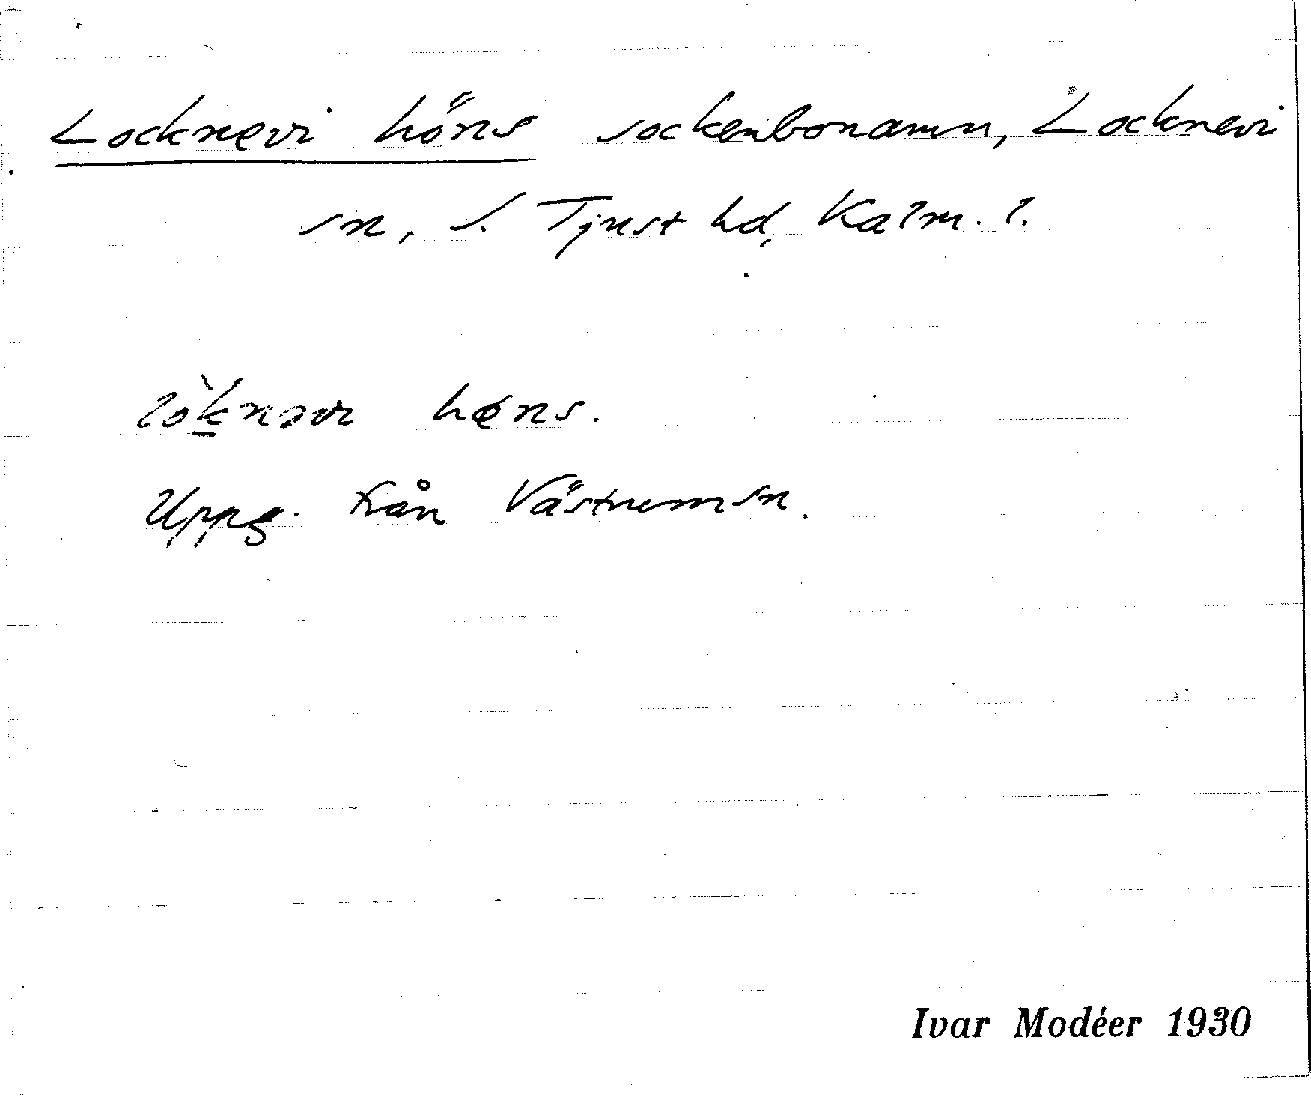 Locknevi höns sockenbonamn, Locknevi
sn, S. Tjust hd, Kalm. l.
lòknəvi høns.
Uppg. från Västrum sn.
Ivar Modéer 1930